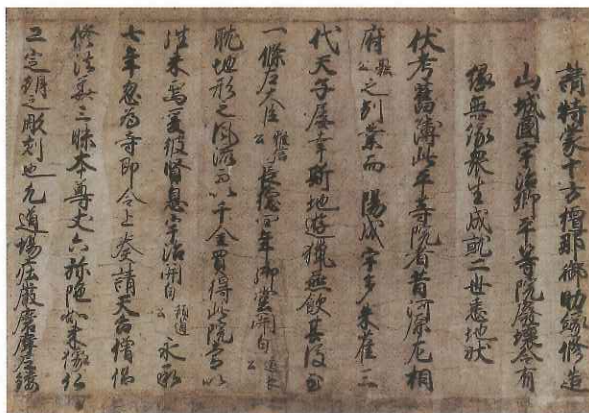 請特蒙十方檀那御助縁修造
山城國宇治郷平等院廢壞令有
縁無縁衆生成就二世悉地状
伏考舊簿此平等院者昔河原左相
府融公之別業而陽成宇多朱雀三
代天子屡幸斯地遊猟燕飲其後至
一條左大臣雅信公長徳四年御堂関白道長公
眺地形之風流而以千金買得此院焉以
往来焉爰彼賢息宇治関白頼通公永承
七年忽為寺即令上奏請天台僧侶
修法華三昧本尊丈六弥陀如来像仏
工定朝之彫刻也凡道場荘厳磨摩尼鏤